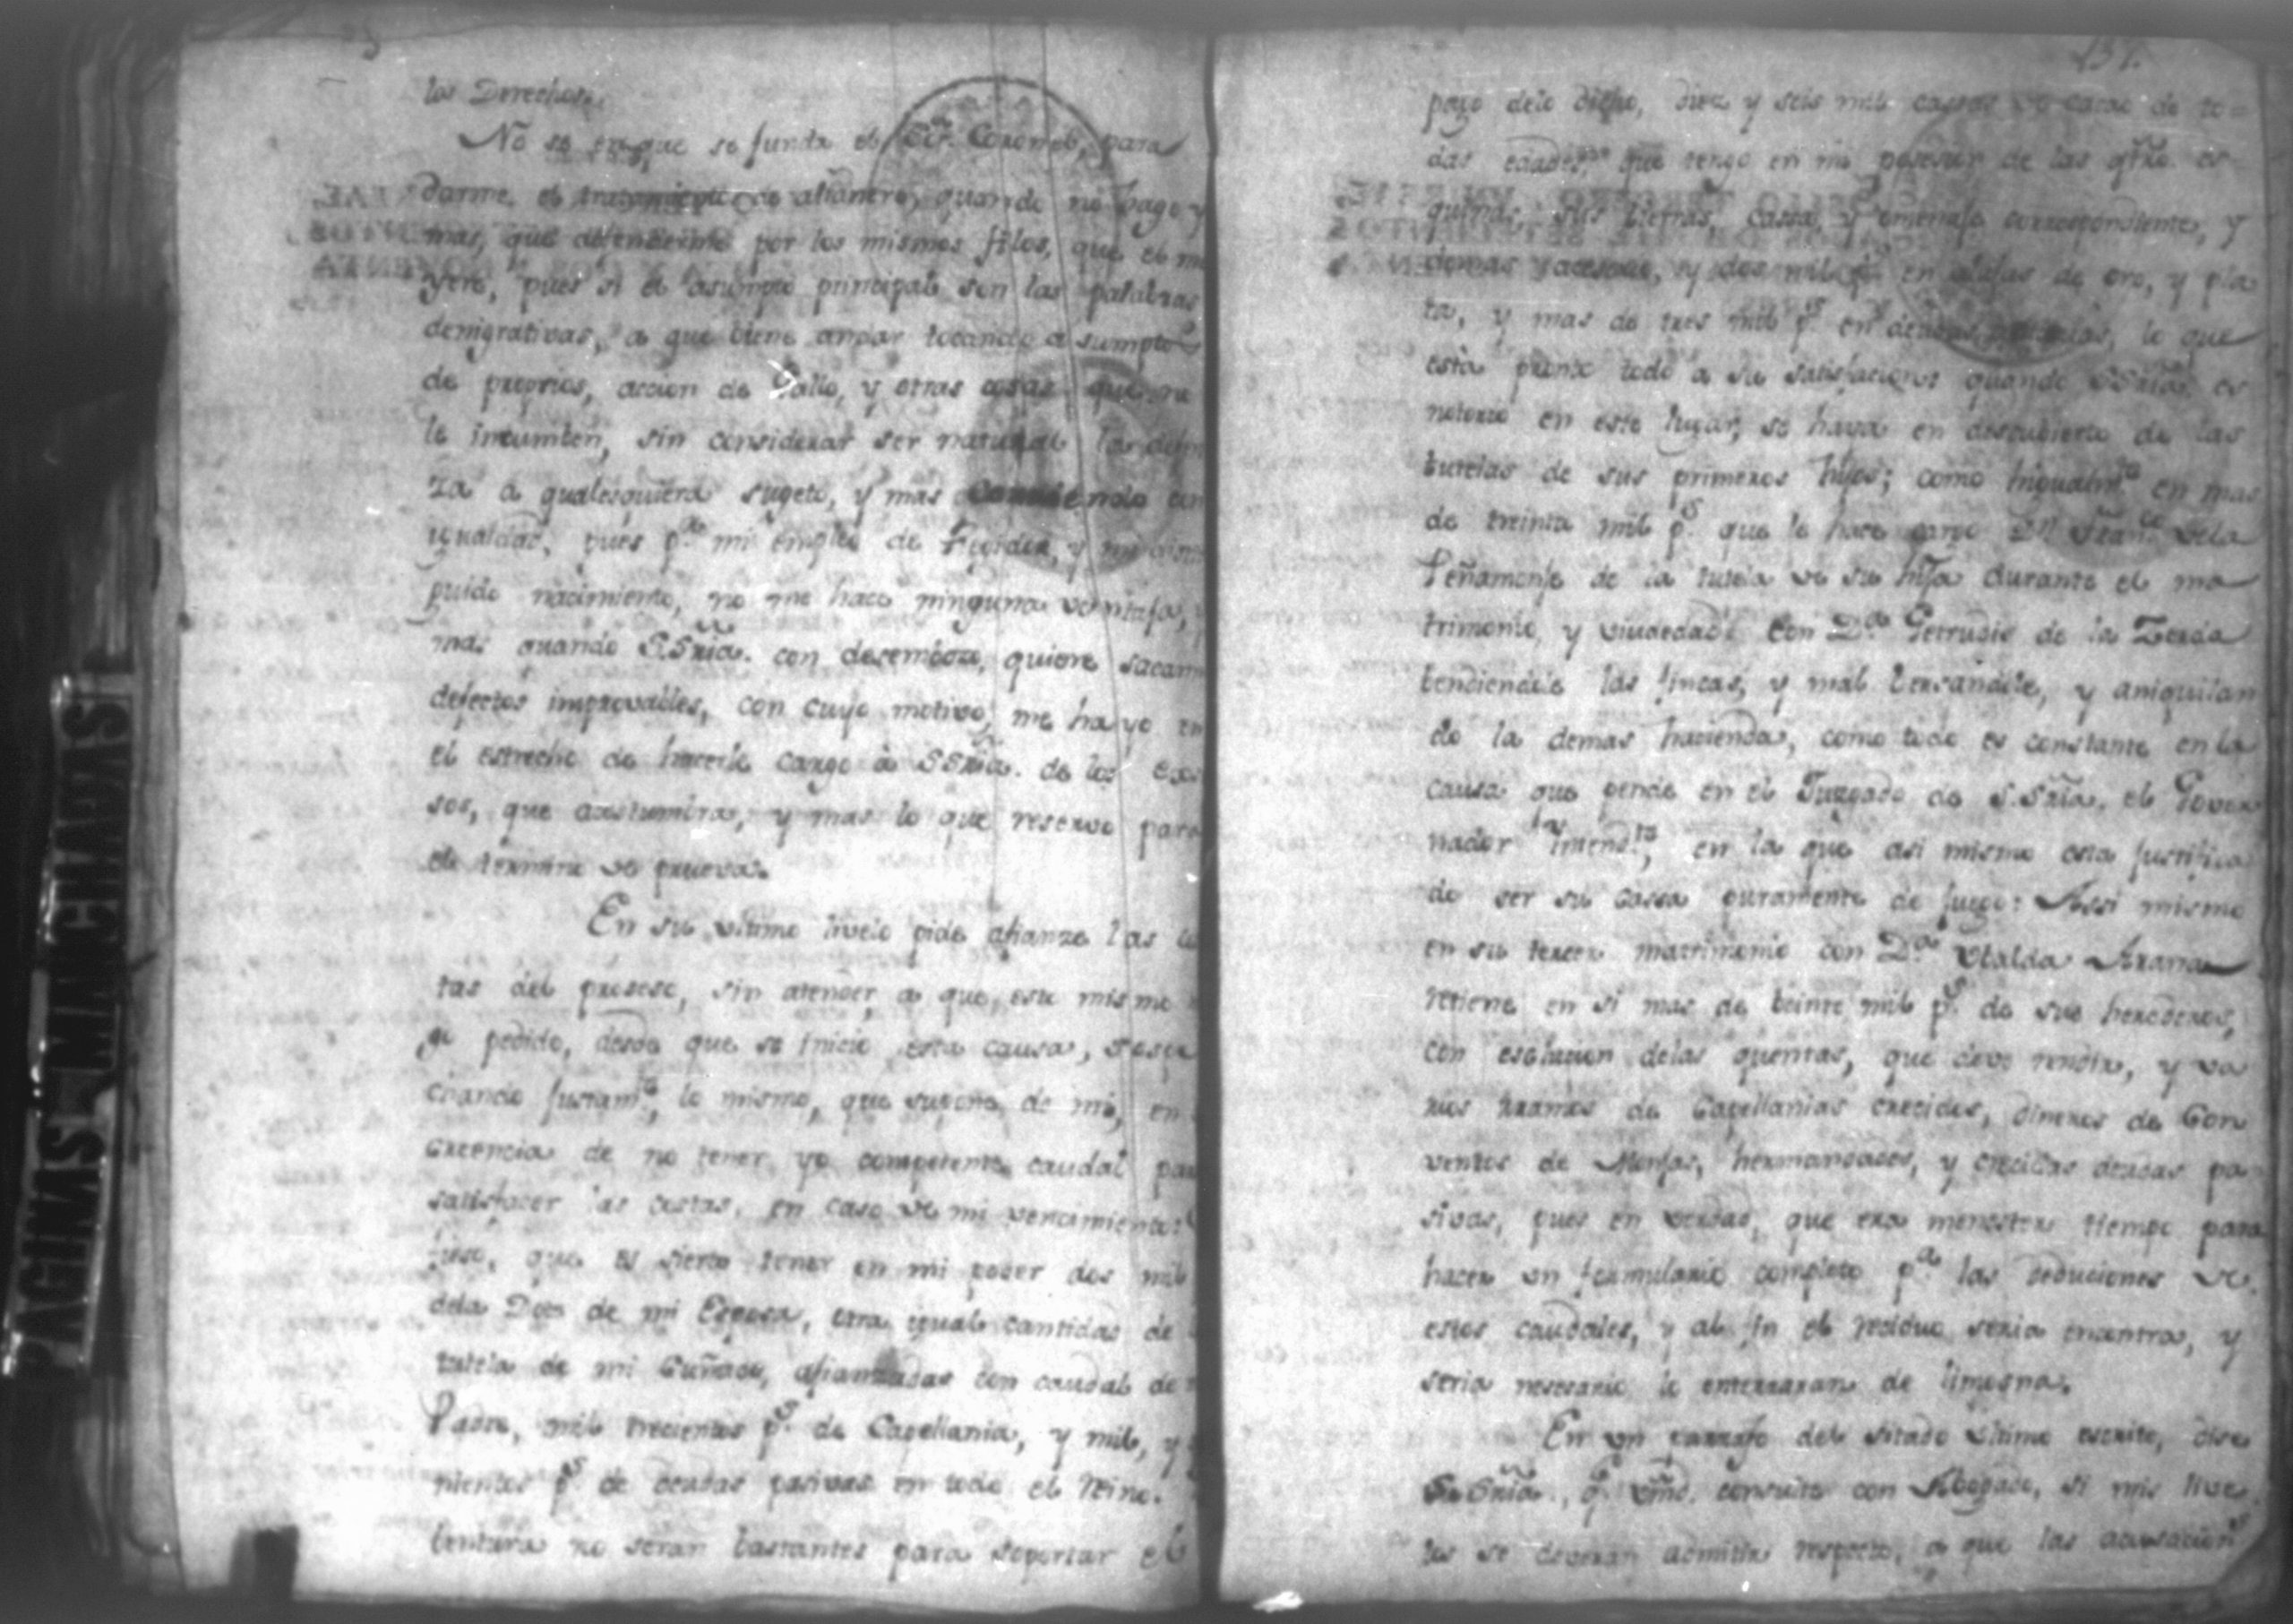 los Derechos.
No se en que se funda el Sor. Coronel, para
darme el tratamiento de altanero, quando no hago
mas, que defenderme por los mismos filos, que el me
yere, pues si el asumpto principal son las palabras
denigrativas, a que biene andar tocando asumptos
de proprios, accion de Gallo, y otras cosas que no
le incumben, sin considerar ser natural la defen
za a qualesquiera sugeto, y mas
igualdad, pues pr. mi empleo de Regidor, y mi
puido nacimiento, no me hace ninguna ventaja,
mas quando S.Sria. con desemboso, quiere sacarme
defectos improvables, con cuyo motivo, me ha yo en
el estrecho de hacerle cargo à SSria. de los
sos, que acostumbra, y mas lo que reservo para
el termino de prueva.
En su ultimo livelo pide afianze las
tas del proseso, sin atender, a que, este mismo
pedido, desde que se inicio esta causa,
chando justamte. lo mismo, que supone de mi, en
creencia de no tener yo competente caudal para
satisfacer las costas, en caso de mi vencimiento:
fieso, que es sierto tener en mi poder dos mil
dela Dote de mi Esposa, otra igual cantidad de
tutela de mi Cuñado, afianzadas con caudal de
Padre, mil trecientos ps. de Capellania, y mil, y
nientos ps. de deudas pasivas en todo el Reino.
bentura no seran bastantes para soportar el
137.
pago delo dicho, diez y seis mil cassas de cacao de to=
das edades, que tengo en mi posesion de las
quinas, sus tierras, cassa, y omenaje correspondiente, y
demas y acsesorio, y dos mil ps. en alajas de oro, y pla
ta, y mas de tres mil ps. en deudas, lo que
està pronto todo a su satisfacion: quando SSria. es
notorio en este lugar, se haya en descubierto de las
tutelas de sus primeros hijos; como higualmte. en mas
de treinta mil ps. que le hace cargo Dn. Franco. Vela
Peñamonje de la tutela de su hija durante el ma
trimonio, y viudedad con Da. Getrudis de la Zerda
bendiendole las fincas, y mal bersandole, y aniquilan
do la demas hacienda, como todo es constante en la
causa que pende en el Jusgado de S.Sria. el Gover
nador Intendte., en la que asi mismo esta justifica
do ser su cassa puramente de juego: Assi mismo
en su tercer matrimonio con Da. Ubalda Arana
retiene en si mas de beinte mil ps. de sus herederos,
con esclucion delas quentas, que deve rendir, y va
rios ramos de Capellanias crecidos, dineros de Con
ventos de Monjas, hermandades, y crecidas deudas pa
sivas, pues en verdad, que era menester tiempo para
hacer un formulario completo pa. las deduciones de
estos caudales, y al fin el residuo seria encontra, y
seria nesesario le enterraran de limosna.
En un parrafo del sitado ultimo escrito, dise
S.Sria., q. Vmd. consulte con Abogado, si mis live
los se deveran admitir respecto, a que las acusacions